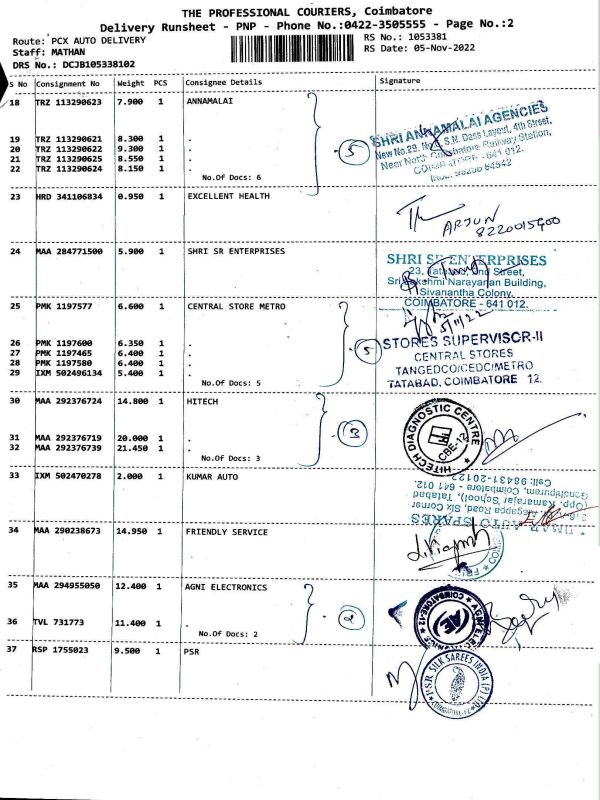 THE PROFESSIONAL COURIERS, Coimbatore
Delivery Runsheet - PNP - Phone No.:0422-3505555 - Page No.:2
Route: PCX AUTO DELIVERY
RS No.: 1053381
Staff: MATHAN
RS Date: 05-Nov-2022
DRS No.: DCJB105338102
S No Consignment No Weight PCS Consignee Details Signature
18 TRZ 113290623 7.900 1 ANNAMALAI
19 TRZ 113290621 8.300 1 .
20 TRZ 113290622 9.300 1 .
21 TRZ 113290625 8.550 1 .
22 TRZ 113290624 8.150 1 .
No.Of Docs: 6
5
SHRI ANNAMALAI AGENCIES
New No.29, S.N. Dass Layout, 4th Street,
Near North Coimbatore Railway Station,
COIMBATORE - 641 012.
23 HRD 341106834 0.950 1 EXCELLENT HEALTH
ARJUN
8220015900
24 MAA 284771500 5.900 1 SHRI SR ENTERPRISES
SHRI SR ENTERPRISES
23, Tatabad, 2nd Street,
Sri Lakshmi Narayanan Building,
Sivanantha Colony,
COIMBATORE - 641 012.
25 PMK 1197577 6.600 1 CENTRAL STORE METRO
26 PMK 1197600 6.350 1 .
27 PMK 1197465 6.400 1 .
28 PMK 1197580 6.400 1 .
29 IXM 502496134 5.400 1 .
No.Of Docs: 5
5
5/11/22
STORES SUPERVISOR-II
CENTRAL STORES
TANGEDCO/CEDC/METRO
TATABAD, COIMBATORE 12.
30 MAA 292376724 14.800 1 HITECH
31 MAA 292376719 20.000 1 .
32 MAA 292376739 21.450 1 .
No.Of Docs: 3
3
HITECH DIAGNOSTIC CENTRE
CBE-12
33 IXM 502470278 2.000 1 KUMAR AUTO
KUMAR AUTO SPARES
Road, Six Corner
(Opp. Kamarajar School), Tatabad
Gandhipuram, Coimbatore - 641 012.
Cell: 98431-20122
34 MAA 290238673 14.950 1 FRIENDLY SERVICE
35 MAA 294955050 12.400 1 AGNI ELECTRONICS
36 TVL 731773 11.400 1 .
No.Of Docs: 2
2
COIMBATORE-12
AE
37 RSP 1755023 9.500 1 PSR
PSR SILK SAREES INDIA (P) LTD